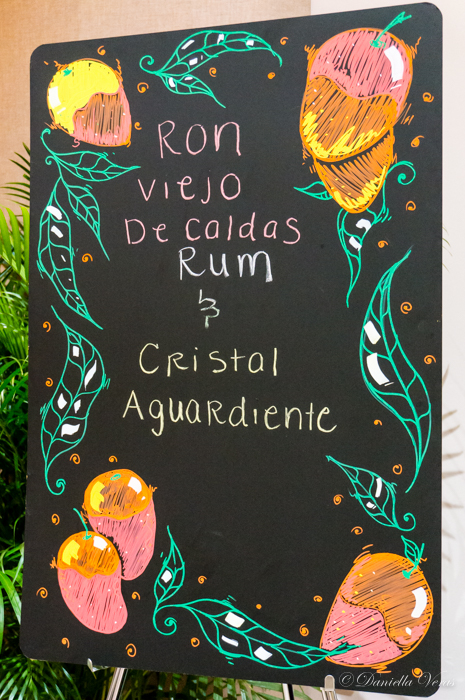 Ron
Viejo
De Caldas
Rum
&
Cristal
Aguardiente
© Daniella